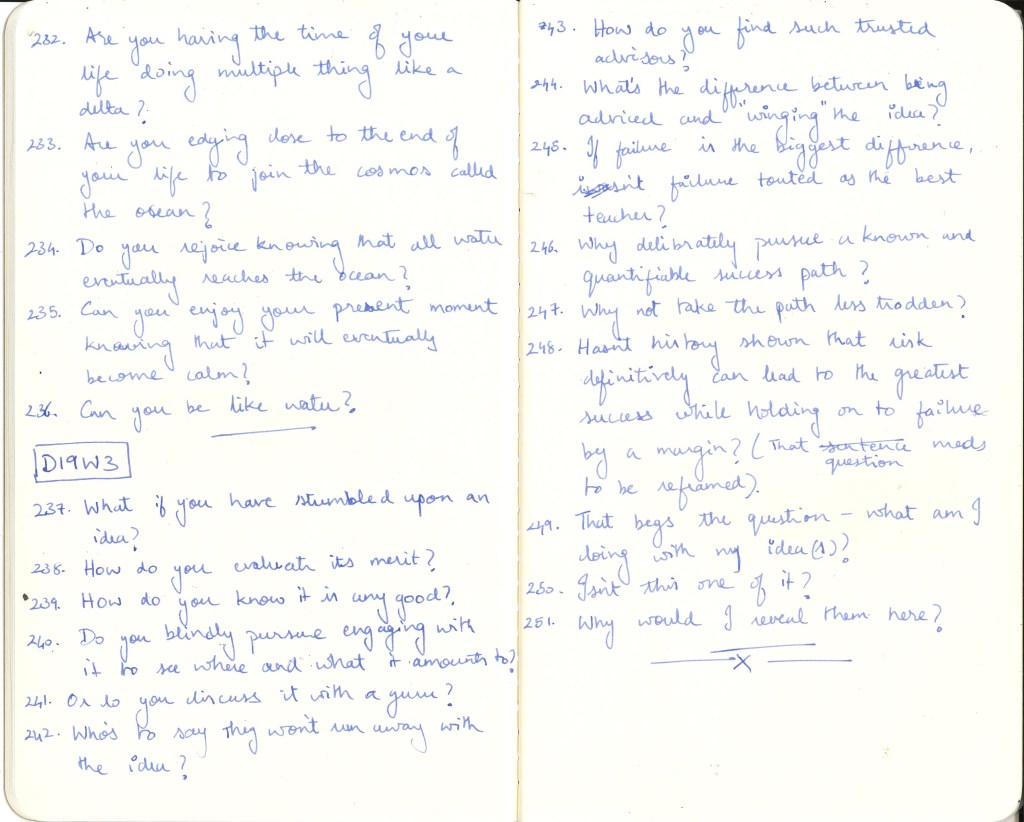 232. Are you having the time of your
life doing multiple thing like a
delta?
233. Are you edging close to the end of
your life to join the cosmos called
the ocean?
234. Do you rejoice knowing that all water
eventually reaches the ocean?
235. Can you enjoy your present moment
knowing that it will eventually
become calm?
236. Can you be like water?
D19W3
237. What if you have stumbled upon an
idea?
238. How do you evaluate its merit?
239. How do you know it is any good?
240. Do you blindly pursue engaging with
it to see where and what it amounts to?
241. Or do you discuss it with a guru?
242. Who's to say they won't run away with
the idea?
243. How do you find such trusted
advisors?
244. What's the difference between being
adviced and "winging" the idea?
245. If failure is the biggest difference,
isn't failure touted as the best
teacher?
246. Why delibrately pursue a known and
quantifiable success path?
247. Why not take the path less trodden?
248. Hasn't history shown that risk
definitively can lead to the greatest
success while holding on to failure
by a margin? (That sentence needs
question
to be reframed).
249. That begs the question - what am I
doing with my idea(s)?
250. Isn't this one of it?
251. Why would I reveal them here?
X